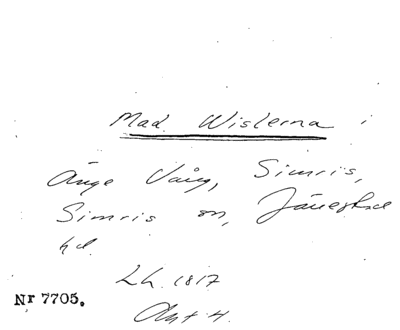 Mad Wislerna i
Änge Vång, Simris,
Simris sn, Järrestad
hd.
Lh. 1817
Nr 7705.
Akt 4.